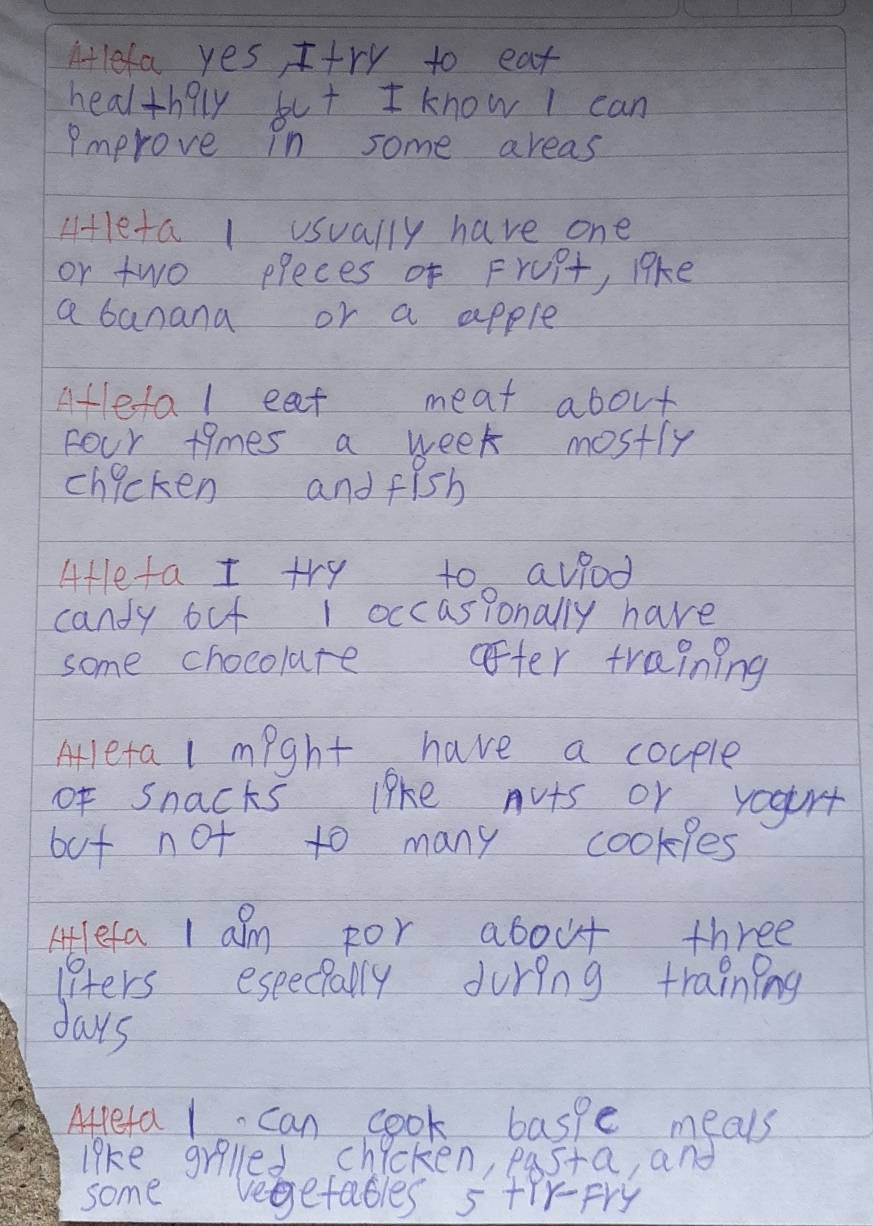 Atleta yes, I try to eat
healthily but I know I can
improve in some areas
Atleta I usually have one
or two pieces of Fruit, like
a banana or a apple
Atleta I eat meat about
Four times a week mostly
chicken and fish
Atleta I try to aviod
candy but I occasionally have
some chocolate after training
Atleta I might have a couple
of snacks like nuts or yogurt
but not to many cookies
Atleta I aim For about three
liters especially during training
days
Atleta I can cook basic meals
like grilled chicken, pasta, and
some vegetables stir-Fry